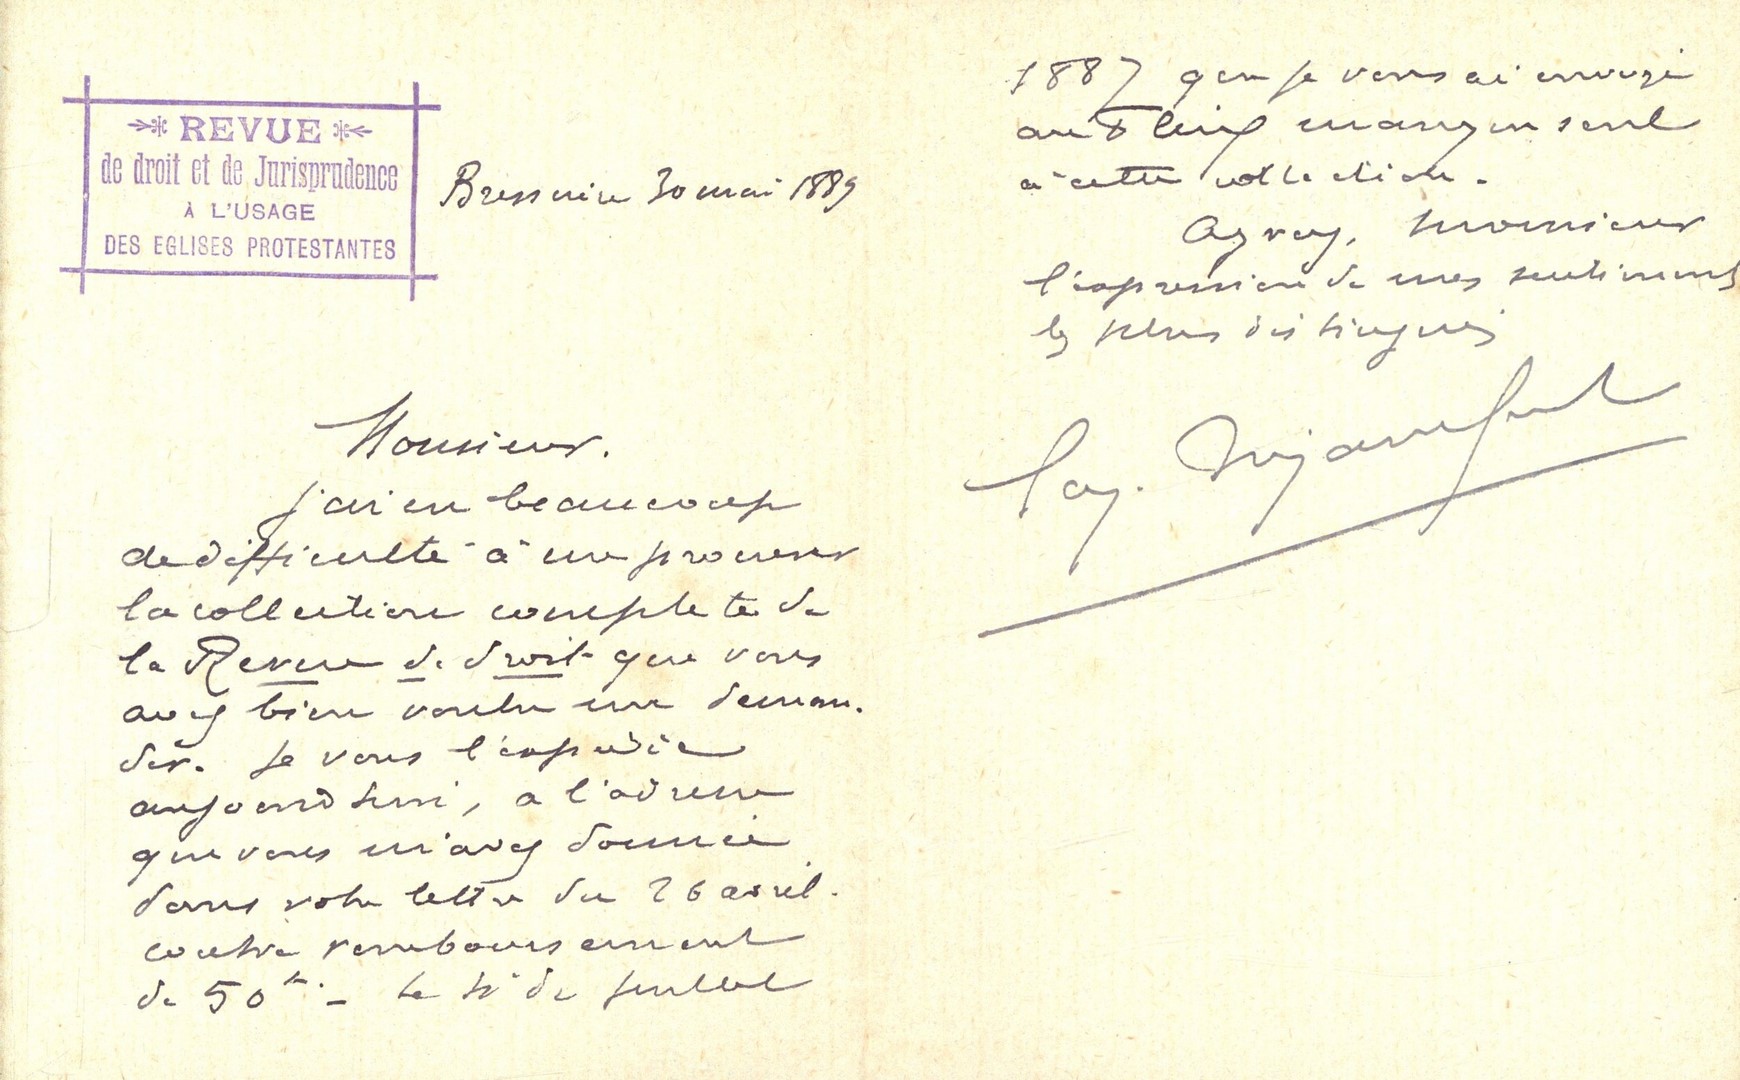 REVUE
de droit et de Jurisprudence
À L'USAGE
DES EGLISES PROTESTANTES
Bressuire 30 mai 1889
Monsieur.
J'ai eu beaucoup
de difficulté à me procurer
la collection complete de
la Revue de droit que vous
avez bien voulu me deman.
der. Je vous l'expédie
aujourd'hui, a l'adresse
que vous m'avez donnée
dans votre lettre du 26 avril.
contre remboursement
de 50 fr. - Le N° de Juillet
1887 que je vous ai envoyé
manquen seul
à cette collection.
Agrey, Monsieur
l'expression de mes sentiments
les plus distingués